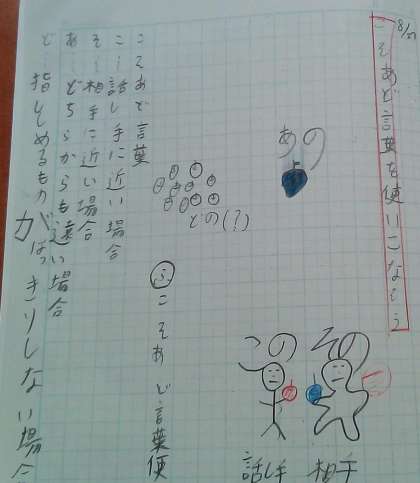 8/27
こそあど言葉を使いこなそう
あの
どの(?)
この
その
話し手
相手
ふこそあど言葉便
こそあど言葉
こ…話し手に近い場合
そ…相手に近い場合
あ…どちらからも遠い場合
ど…指し しめるものがはっきりしない場合